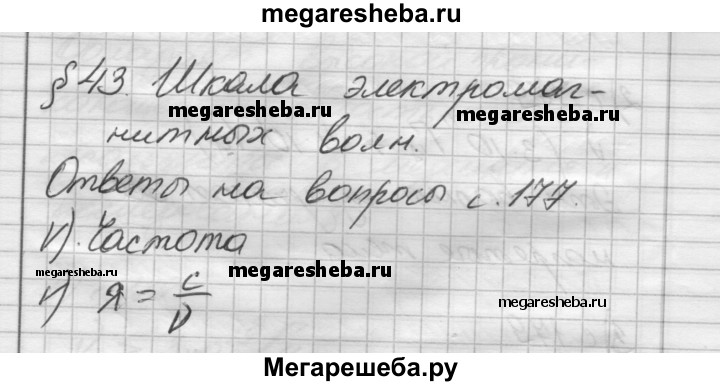 megaresheba.ru
§ 43. Шкала электромаг-
megaresheba.ru megaresheba.ru
нитных волн.
Ответы на вопросы с. 177.
V). Частота
megaresheba.ru megaresheba.ru
v) Я = c/ν
megaresheba.ru
Мегарешеба.ру